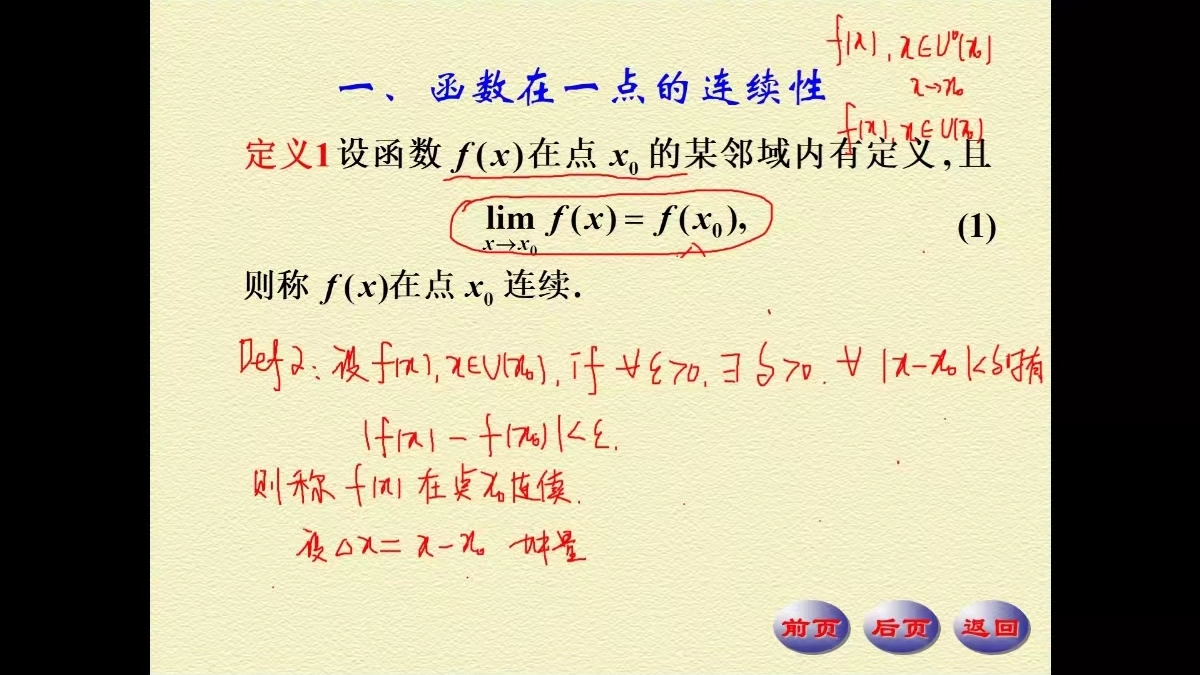 f(x), x∈U°(x₀)
x→x₀
一、函数在一点的连续性
f(x), x∈U(x₀)
定义1 设函数 f(x)在点 x₀ 的某邻域内有定义,且
lim f(x) = f(x₀), (1)
x→x₀
则称 f(x)在点 x₀ 连续.
Def 2: 设 f(x), x∈U(x₀), if ∀ε>0, ∃δ>0. ∀ |x-x₀|<δ时有
|f(x) - f(x₀)|<ε.
则称 f(x) 在点x₀连续.
设△x = x-x₀ 增量
前页 后页 返回